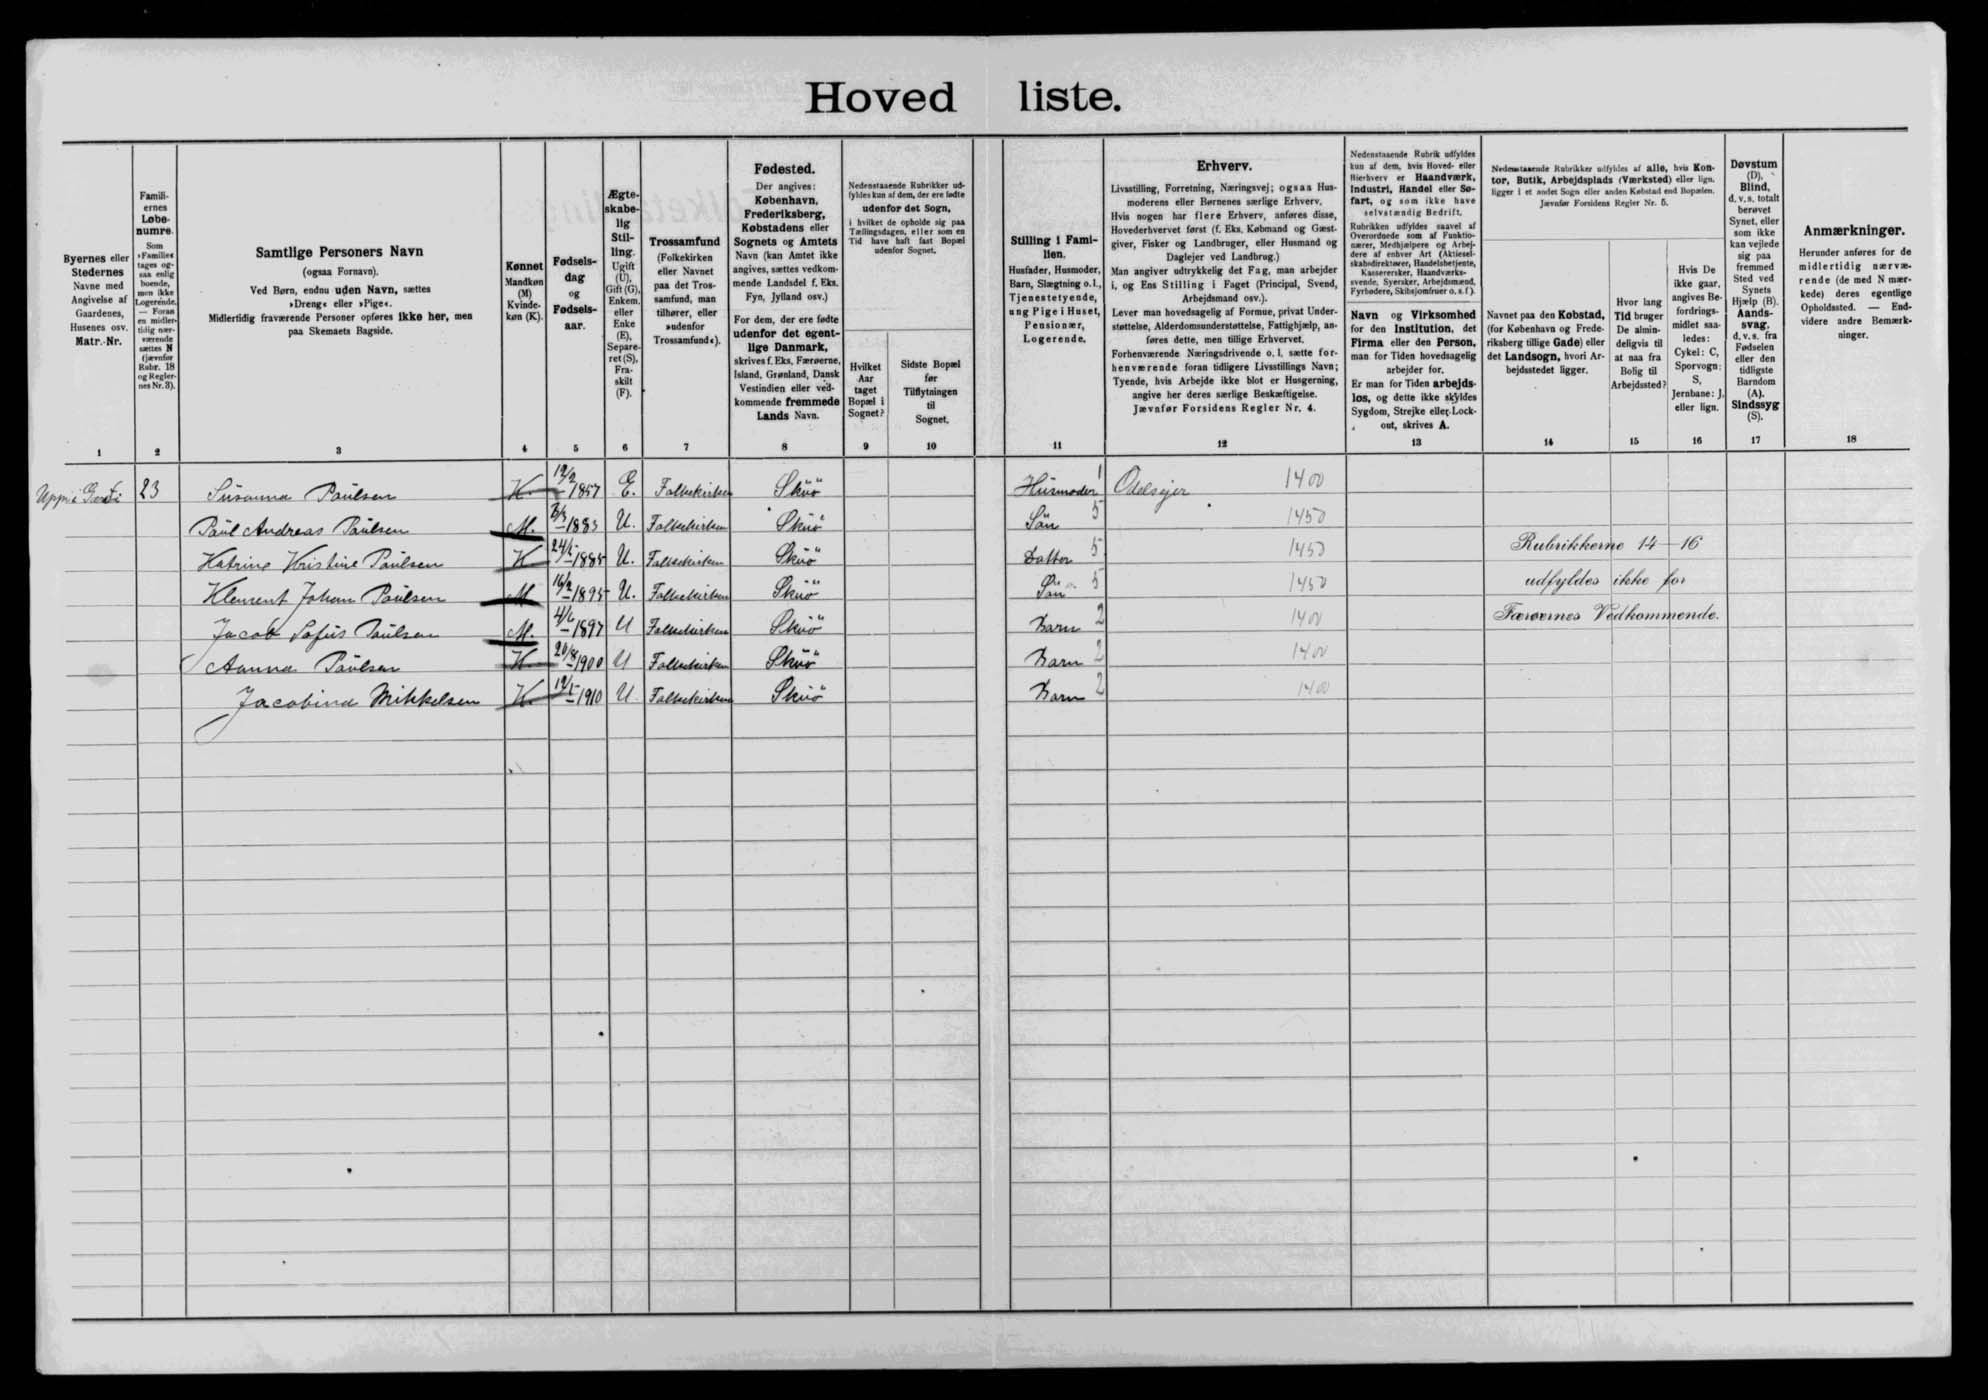 Hovedliste.
Byernes eller
Stedernes
Navne med
Angivelse af
Gaardenes,
Husenes osv.
Matr.-Nr.
1
Famili-
ernes
Løbe-
numre.
Som
»Familie«
tages og-
saa enlig
boende,
men ikke
Logerende.
— Foran
en midler-
tidig nær-
værende
sættes N
(jævnfør
Rubr. 18
og Regler-
nes Nr. 3).
2
Samtlige Personers Navn
(ogsaa Fornavn).
Ved Børn, endnu uden Navn, sættes
»Dreng« eller »Pige«.
Midlertidig fraværende Personer opføres ikke her, men
paa Skemaets Bagside.
3
Kønnet
Mandkøn
(M)
Kvinde-
køn (K).
4
Fødsels-
dag
og
Fødsels-
aar.
5
Ægte-
skabe-
lig
Stil-
ling.
Ugift
(U),
Gift (G),
Enkem.
eller
Enke
(E),
Separe-
ret (S),
Fra-
skilt
(F).
6
Trossamfund
(Folkekirken
eller Navnet
paa det Tros-
samfund, man
tilhører, eller
»udenfor
Trossamfund«).
7
Fødested.
Der angives:
København,
Frederiksberg,
Købstadens eller
Sognets og Amtets
Navn (kan Amtet ikke
angives, sættes vedkom-
mende Landsdel f. Eks.
Fyn, Jylland osv.)
For dem, der ere fødte
udenfor det egent-
lige Danmark,
skrives f. Eks, Færøerne,
Island, Grønland, Dansk
Vestindien eller ved-
kommende fremmede
Lands Navn.
8
Nedenstaaende Rubrikker ud-
fyldes kun af dem, der ere fødte
udenfor det Sogn,
i hvilket de opholde sig paa
Tællingsdagen, eller som en
Tid have haft fast Bopæl
udenfor Sognet.
Hvilket
Aar
taget
Bopæl i
Sognet?
9
Sidste Bopæl
før
Tilflytningen
til
Sognet.
10
Stilling i Fami-
lien.
Husfader, Husmoder,
Barn, Slægtning o.l.,
Tjenestetyende,
ung Pige i Huset,
Pensionær,
Logerende.
11
Erhverv.
Livsstilling, Forretning, Næringsvej; ogsaa Hus-
moderens eller Børnenes særlige Erhverv.
Hvis nogen har flere Erhverv, anføres disse,
Hovederhvervet først (f. Eks. Købmand og Gæst-
giver, Fisker og Landbruger, eller Husmand og
Daglejer ved Landbrug.)
Man angiver udtrykkelig det Fag, man arbejder
i, og Ens Stilling i Faget (Principal, Svend,
Arbejdsmand osv.).
Lever man hovedsagelig af Formue, privat Under-
støttelse, Alderdomsunderstøttelse, Fattighjælp, an-
føres dette, men tillige Erhvervet.
Forhenværende Næringsdrivende o. l. sætte for-
henværende foran tidligere Livsstillings Navn;
Tyende, hvis Arbejde ikke blot er Husgerning,
angive her deres særlige Beskæftigelse.
Jævnfør Forsidens Regler Nr. 4.
12
Nedenstaaende Rubrik udfyldes
kun af dem, hvis Hoved- eller
Bierhverv er Haandværk,
Industri, Handel eller Sø-
fart, og som ikke have
selvstændig Bedrift.
Rubrikken udfyldes saavel af
Overordnede som af Funktio-
nærer, Medhjælpere og Arbej-
dere af enhver Art (Aktiesel-
skabsdirektører, Handelsbetjente,
Kasserersker, Haandværks-
svende, Syersker, Arbejdsmænd,
Fyrbødere, Skibsjomfruer o. s. f.).
Navn og Virksomhed
for den Institution, det
Firma eller den Person,
man for Tiden hovedsagelig
arbejder for.
Er man for Tiden arbejds-
løs, og dette ikke skyldes
Sygdom, Strejke eller Lock-
out, skrives A.
13
Nedenstaaende Rubrikker udfyldes af alle, hvis Kon-
tor, Butik, Arbejdsplads (Værksted) eller lign.
ligger i et andet Sogn eller anden Købstad end Bopælen.
Jævnfør Forsidens Regler Nr. 5.
Navnet paa den Købstad,
(for København og Frede-
riksberg tillige Gade) eller
det Landsogn, hvori Ar-
bejdsstedet ligger.
14
Hvor lang
Tid bruger
De almin-
deligvis til
at naa fra
Bolig til
Arbejdssted?
15
Hvis De
ikke gaar,
angives Be-
fordrings-
midlet saa-
ledes:
Cykel: C,
Sporvogn:
S,
Jernbane: J,
eller lign.
16
Døvstum
(D),
Blind,
d. v. s. totalt
berøvet
Synet, eller
som ikke
kan vejlede
sig paa
fremmed
Sted ved
Synets
Hjælp (B).
Aands-
svag,
d. v. s. fra
Fødselen
eller den
tidligste
Barndom
(A).
Sindssyg
(S).
17
Anmærkninger.
Herunder anføres for de
midlertidig nærvæ-
rende (de med N mær-
kede) deres egentlige
Opholdssted. — End-
videre andre Bemærk-
ninger.
18
23 Susanna Paulsen K. 1857 E. Folkekirken Skuö Husmoder 1 Odelsejer 1400
Paul Andreas Paulsen M. 1883 U. Folkekirken Skuö Sön 5 1450
Katrine Kristine Paulsen K 1885 U. Folkekirken Skuö Datter 5 1450
Klement Johan Paulsen M 16/2 1895 U. Folkekirken Skuö Sön 5 1450
Jacob Sofus Paulsen M. 4/6 1897 U Folkekirken Skuö Barn 2 1400
Aanna Paulsen K 20/8 1900 U Folkekirken Skuö Barn 2 1400
Jacobina Mikkelsen K. 1910 U. Folkekirken Skuö Barn 2 1400
Rubrikkerne 14—16
udfyldes ikke for
Færøernes Vedkommende.